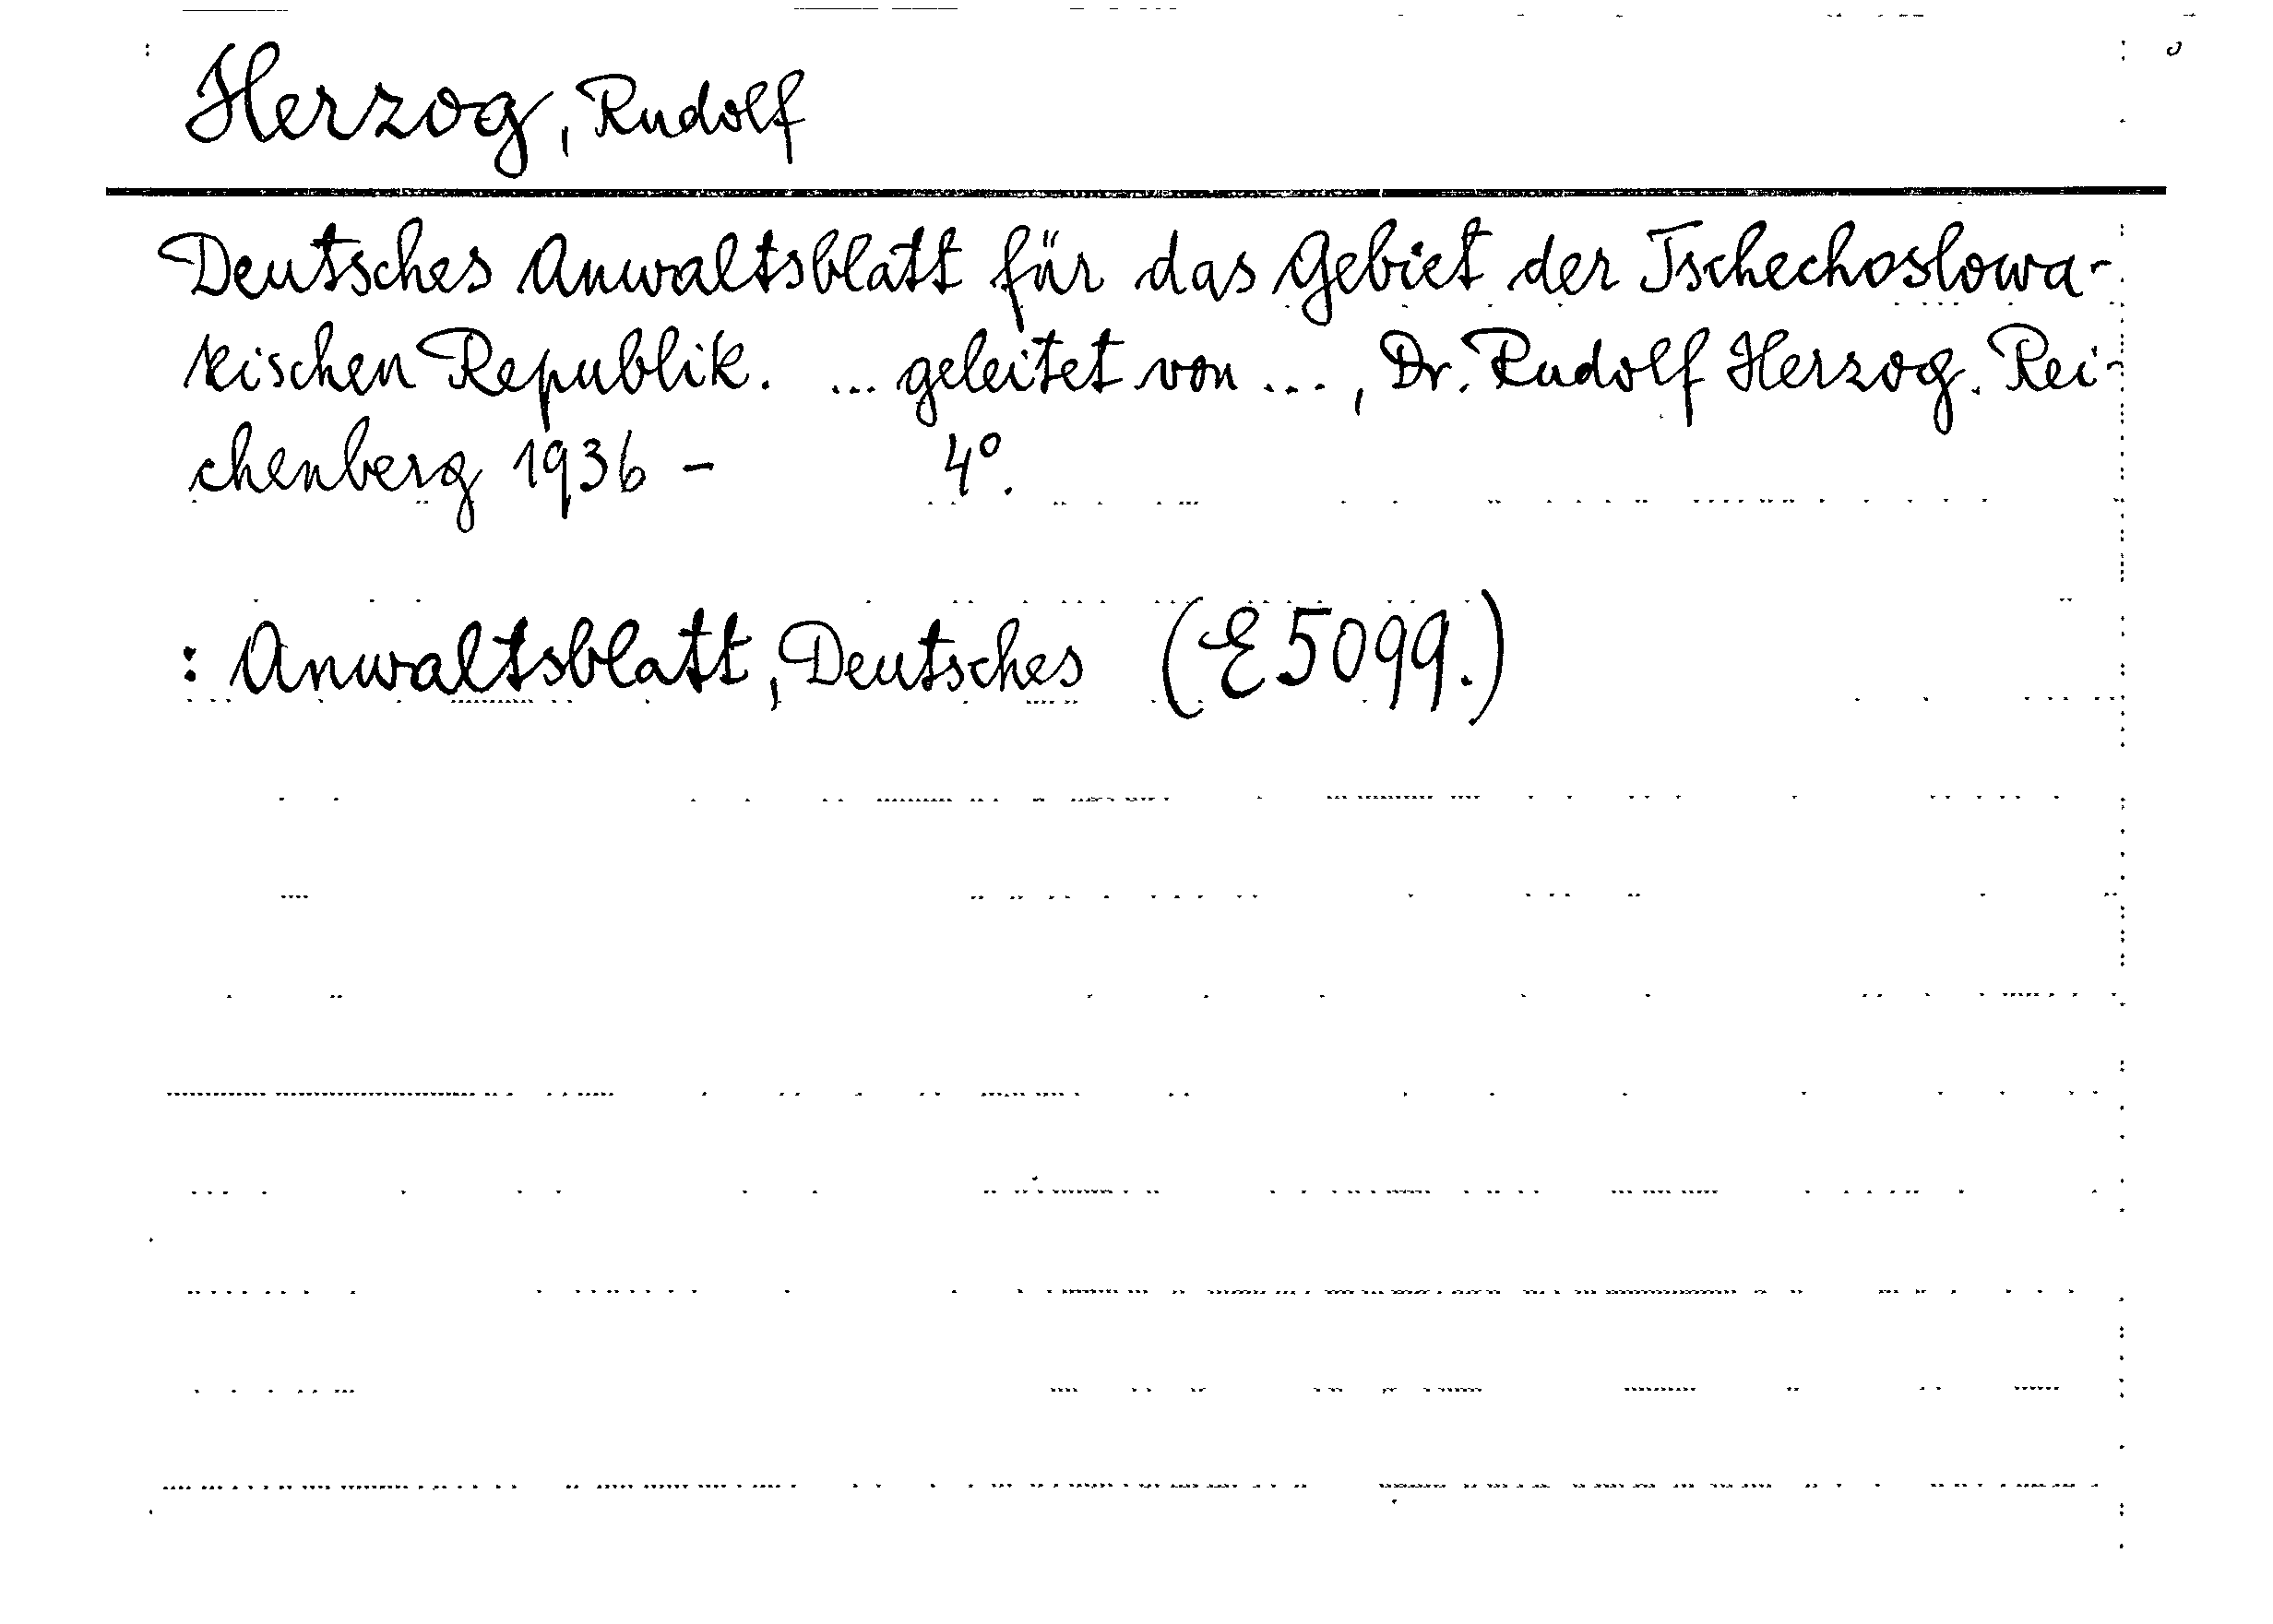 Herzog, Rudolf
Deutsches Anwaltsblatt für das Gebiet der Tschechoslowa-
kischen Republik. ... geleitet von ..., Dr. Rudolf Herzog. Rei-
chenberg 1936 - 4°.
: Anwaltsblatt, Deutsches (E 5099.)